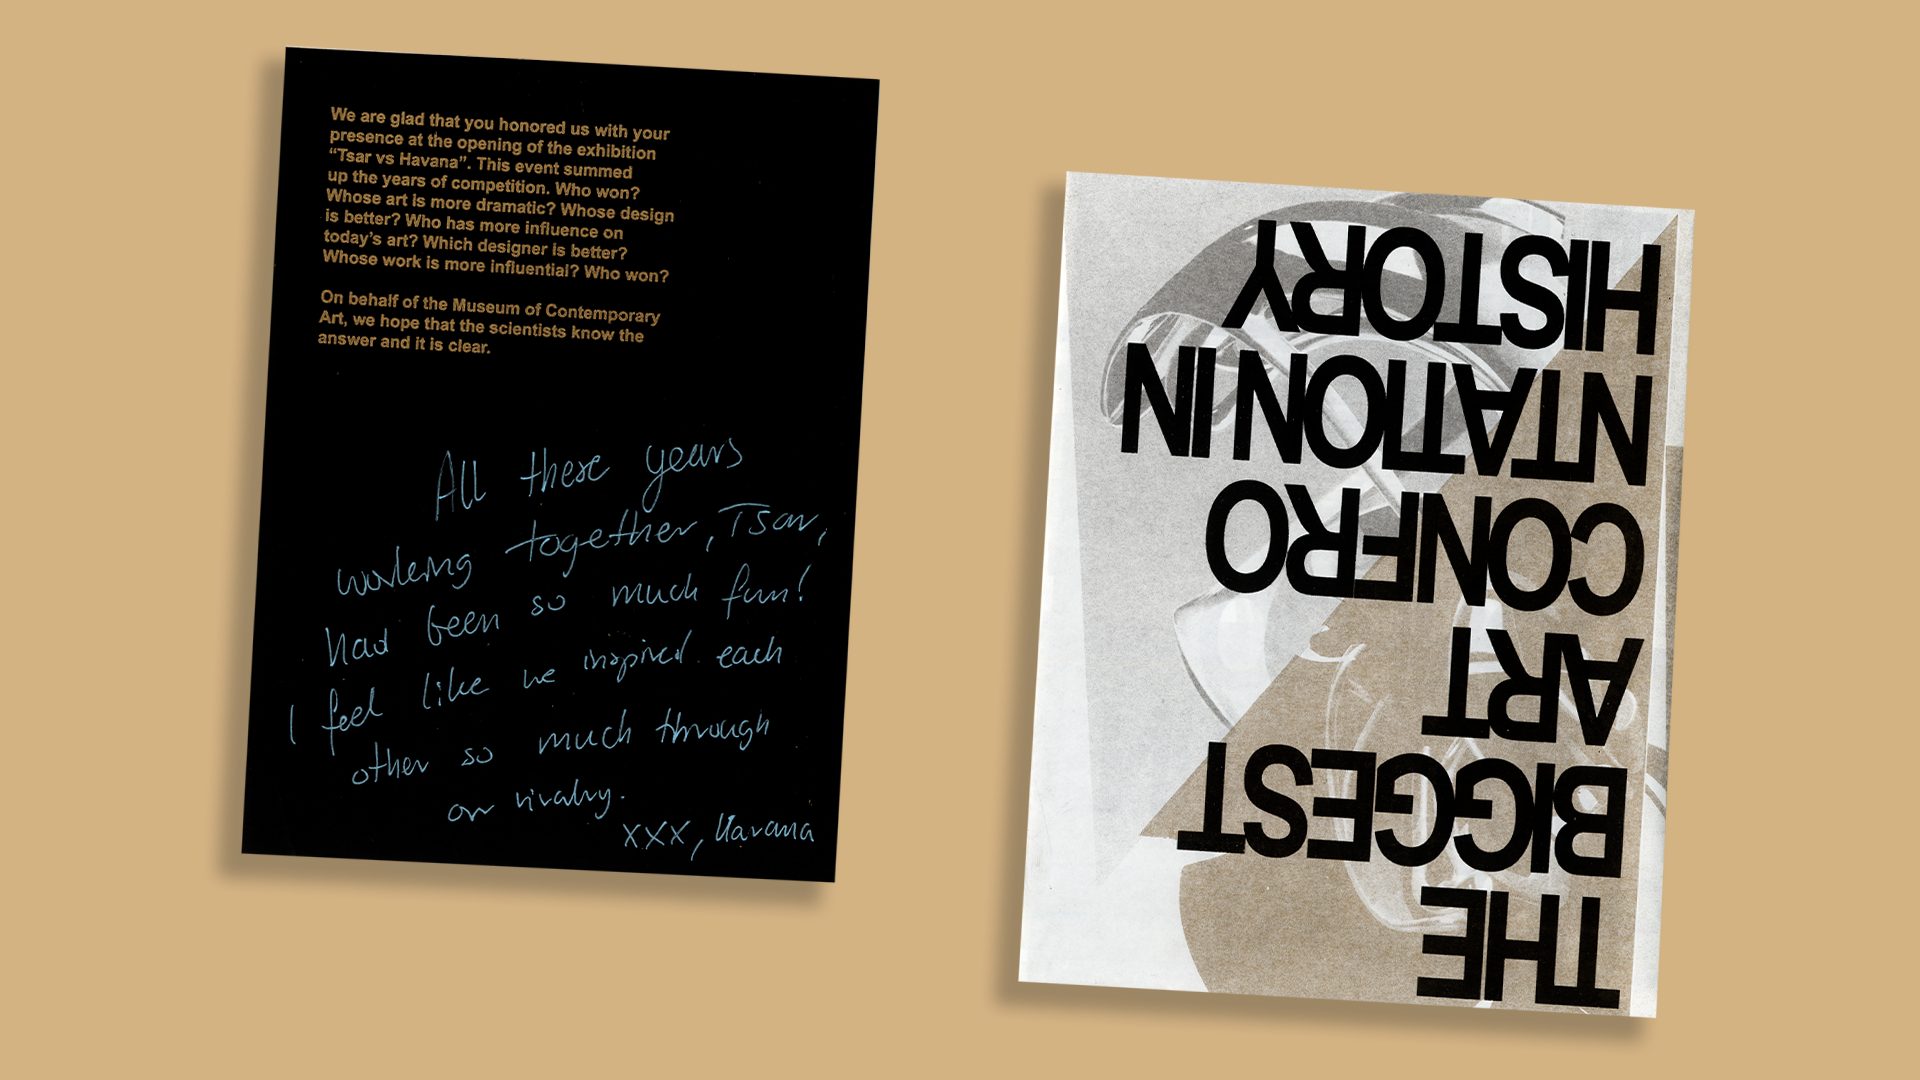 We are glad that you honored us with your
presence at the opening of the exhibition
“Tsar vs Havana”. This event summed
up the years of competition. Who won?
Whose art is more dramatic? Whose design
is better? Who has more influence on
today’s art? Which designer is better?
Whose work is more influential? Who won?
On behalf of the Museum of Contemporary
Art, we hope that the scientists know the
answer and it is clear.
All these years
working together, Tsar,
had been so much fun!
I feel like we inspired each
other so much through
our rivalry.
xxx, Havana
THE
BIGGEST
ART
CONFRO
NTATION IN
HISTORY